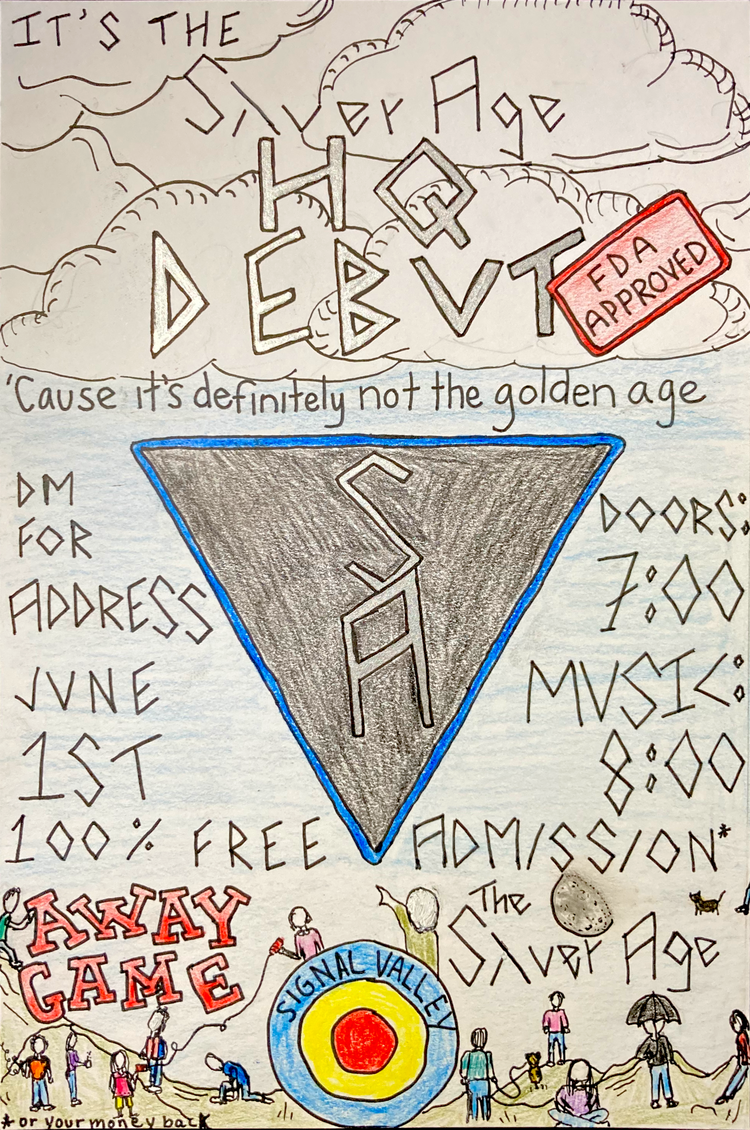 IT'S THE
Silver Age
HQ
DEBUT
FDA
APPROVED
'Cause it's definitely not the golden age
SA
DM
FOR
ADDRESS
JUNE
1ST
DOORS:
7:00
MUSIC:
8:00
100% FREE ADMISSION*
AWAY
GAME
SIGNAL VALLEY
The
Silver Age
* or your money back